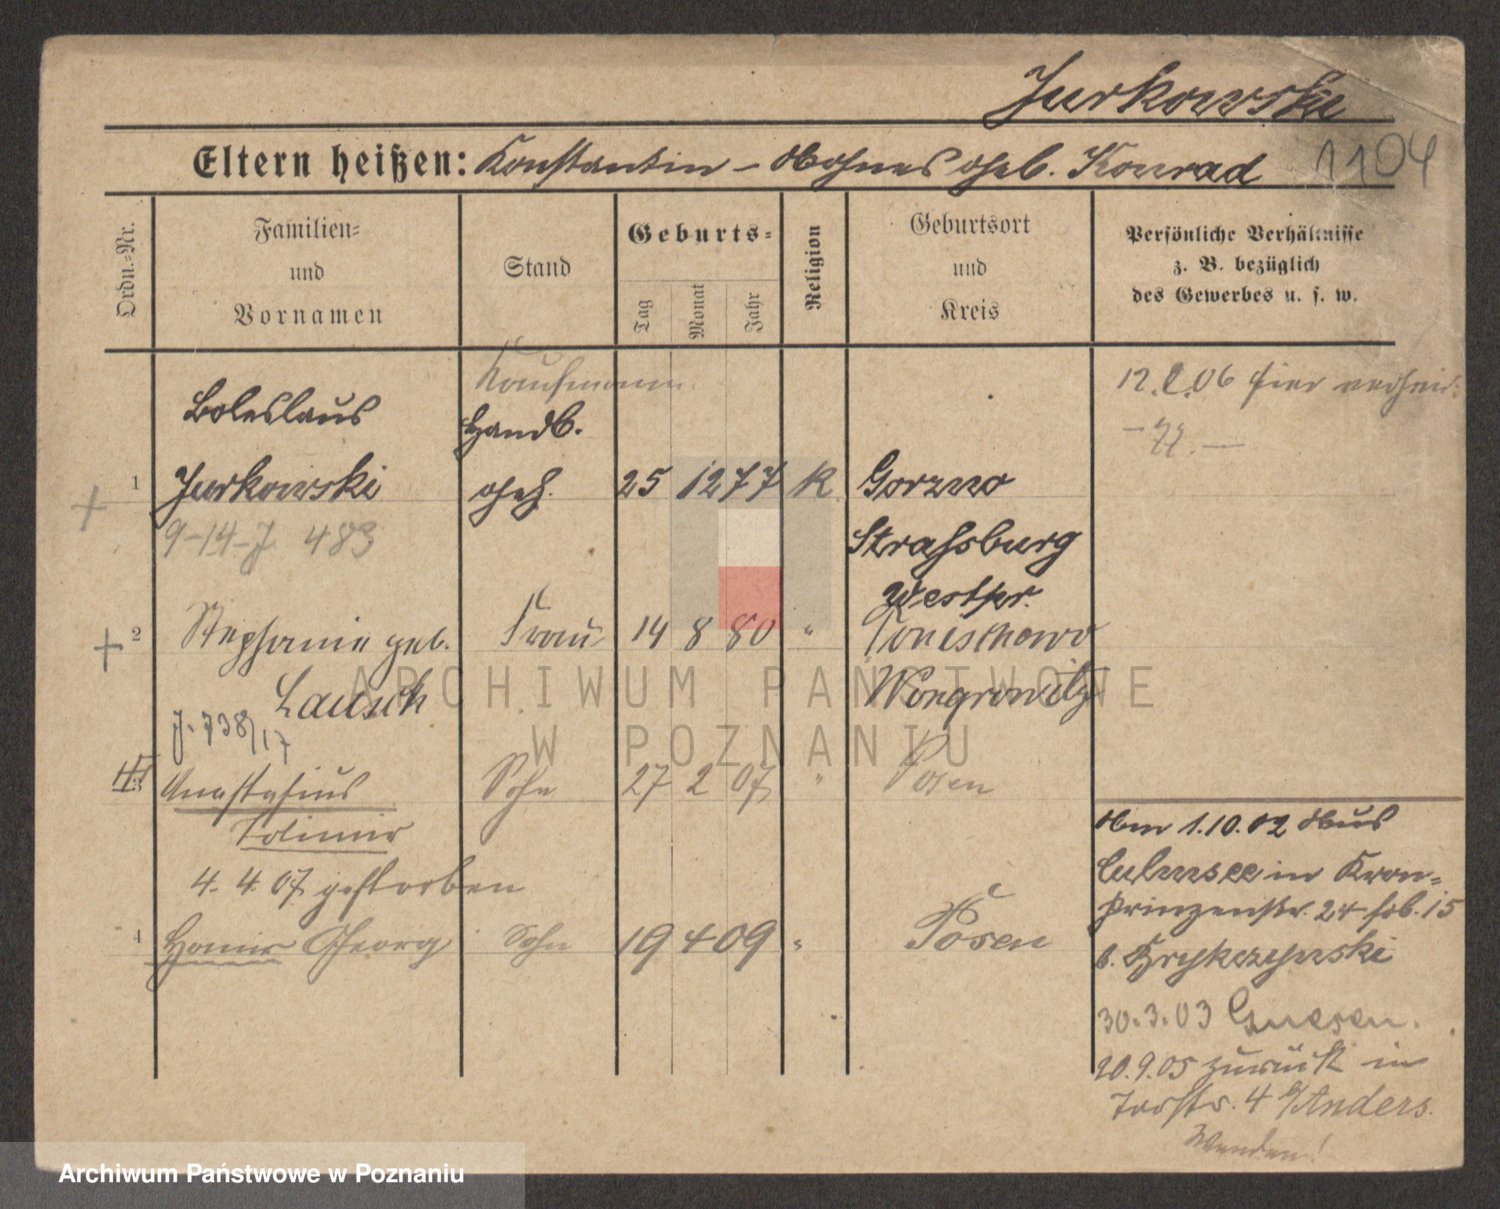 Jurkowski
1104
Eltern heißen: Konstantin - Agnes geb. Konrad
Ordn.-Nr.
Familien-
und
Vornamen
Stand
Geburts-
Tag
Monat
Jahr
Religion
Geburtsort
und
Kreis
Persönliche Verhältnisse
z. B. bezüglich
des Gewerbes u. s. w.
Kaufmann
Boleslaus
Handl.
1 Jurkowski
geh. 25 12 77 K Gorzno
9-14-J 483
Strassburg
Westpr.
12. 06 hier verheir.
2 Stephanie geb. Frau 14 8 80 "
Lausch
Wongrowitz
J. 738/17
Anastasius Sohn 27 2 07 " Posen
4. 4. 07 gestorben
4 Georg Sohn 19 4 09 " Posen
Am 1.10.02 Aus
Culmsee in Kron-
prinzenstr. 24 15
b.
30.3.03 Gnesen.
20.9.05 zurück in
4 b/Anders.
Wenden!
ARCHIWUM PAŃSTWOWE
W POZNANIU
Archiwum Państwowe w Poznaniu